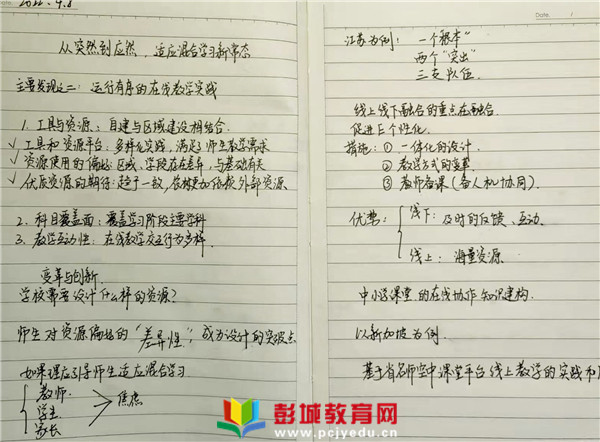 2022.9.8
从突然到应然，适应混合学习新常态
主要发现之二：运行有序的在线教学实践
1. 工具与资源：自建与区域建设相结合.
√ 工具和资源平台：多样化实践，满足了师生教学需求
√ 资源使用的偏好：区域、学段存在差异，与基础有关
√ 优质资源的期待：趋于一致，农村更加依赖外部资源
2. 科目覆盖面：覆盖学习阶段主要学科
3. 教学互动性：在线教学交互行为多样.
变革与创新
学校需要设计什么样的资源？
师生对资源偏好的“差异性”，成为设计的突破点
如果理应引导师生适应混合学习
教师
学生
家长
焦虑
Date.
江苏为例： 一个“根本”
两个“突出”
三支队伍.
线上线下融合的重点在融合
促进个性化.
措施：① 一体化的设计.
② 教学方式的变革
③ 教师备课（备人机协同）.
优势：
线下：及时的反馈、互动.
线上：海量资源.
中小学课堂的在线协作知识建构.
以新加坡为例.
基于省名师空中课堂平台线上教学的实践和
彭城教育网
www.pcjyedu.cn